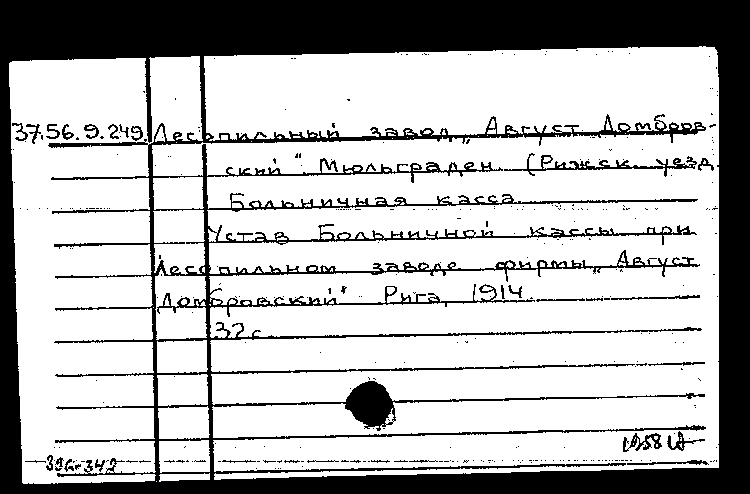 37.56.9.249. Лесопильный завод „Август Домбров-
ский“. Мюльграден. (Рижск. уезд
Больничная касса
Устав Больничной кассы при
Лесопильном заводе фирмы „Август
Домбровский“ Рига, 1914
32 с
1958
396-342